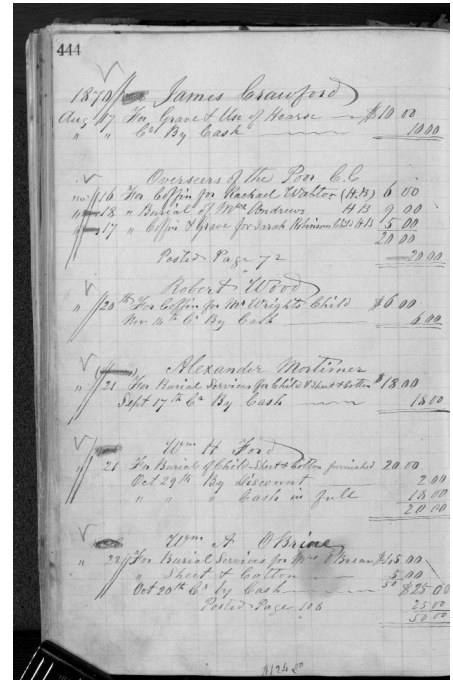 444
1870 James Crawford
Aug 17 For Grave & Use of Hearse $10 00
" " Cr By Cash 10 00
Overseers of the Poor C.C.
" 16 For Coffin for Rachael Walton (H.B) 6 00
" 18 " Burial of Mrs Andrews H B 9 00
" 17 " Coffin & Grave for Sarah Robinson Child H B 5 00
20 00
Posted Page 72 20 00
Robert Wood
" 20th For Coffin for Mr Wrights Child $6 00
Nov 14th Cr By Cash 6 00
Alexander Mortimer
" 21 For Burial Services for Child & Sheet & Cotton $18 00
Sept 17th Cr By Cash 18 00
Wm H Ford
" 21 For Burial of Child Sheet & Cotton furnished 20 00
Oct 29th By Discount 2 00
" " " Cash in full 18 00
20 00
Wm A O'Brine
" 22 For Burial Services for Mrs O'Brian $45 00
" Sheet & Cotton 5 00
Oct 20th Cr By Cash 50 $25 00
Posted Page 106 25 00
50 00